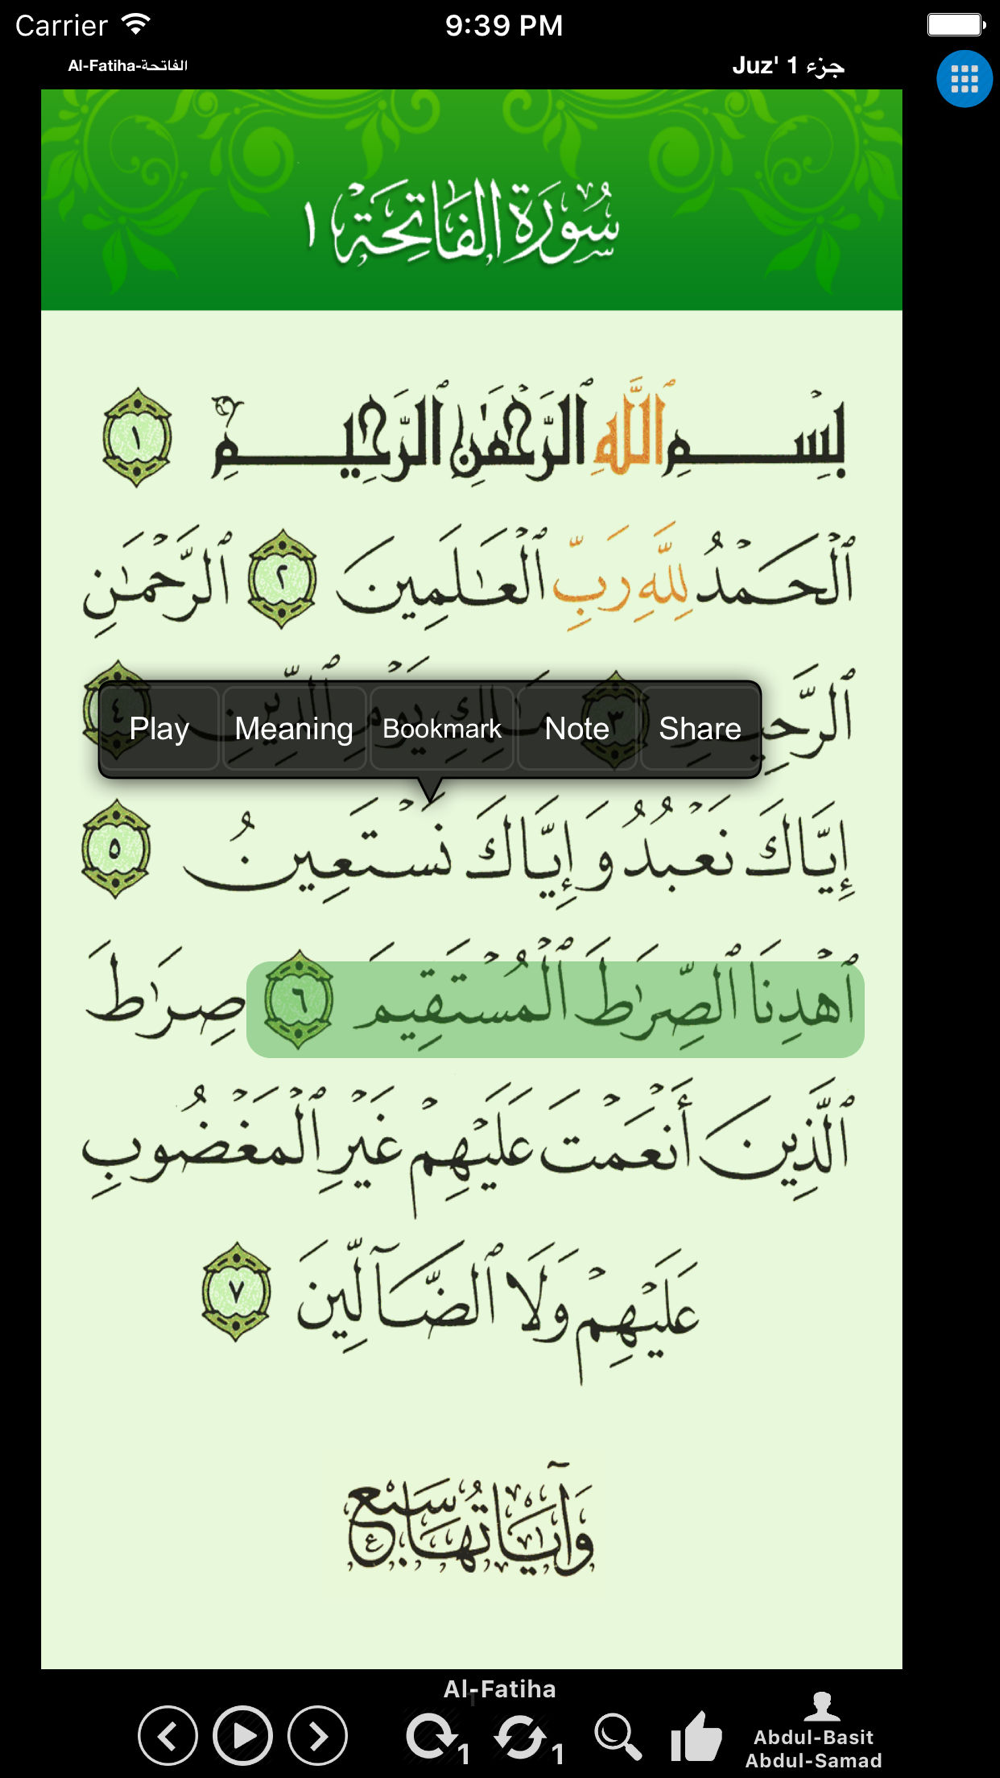 Carrier 9:39 PM
Al-Fatiha-الفاتحة Juz' 1 جزء
سُورَةُ الفَاتِحَة ١
بِسْمِ ٱللَّهِ ٱلرَّحْمَٰنِ ٱلرَّحِيمِ ١
ٱلْحَمْدُ لِلَّهِ رَبِّ ٱلْعَٰلَمِينَ ٢ ٱلرَّحْمَٰنِ
ٱلرَّحِيمِ ٣ مَٰلِكِ يَوْمِ ٱلدِّينِ ٤
Play Meaning Bookmark Note Share
إِيَّاكَ نَعْبُدُ وَإِيَّاكَ نَسْتَعِينُ ٥
ٱهْدِنَا ٱلصِّرَٰطَ ٱلْمُسْتَقِيمَ ٦ صِرَٰطَ
ٱلَّذِينَ أَنْعَمْتَ عَلَيْهِمْ غَيْرِ ٱلْمَغْضُوبِ
عَلَيْهِمْ وَلَا ٱلضَّآلِّينَ ٧
وَآيَاتُهَا سَبْع
Al-Fatiha
1 1 Abdul-Basit
Abdul-Samad